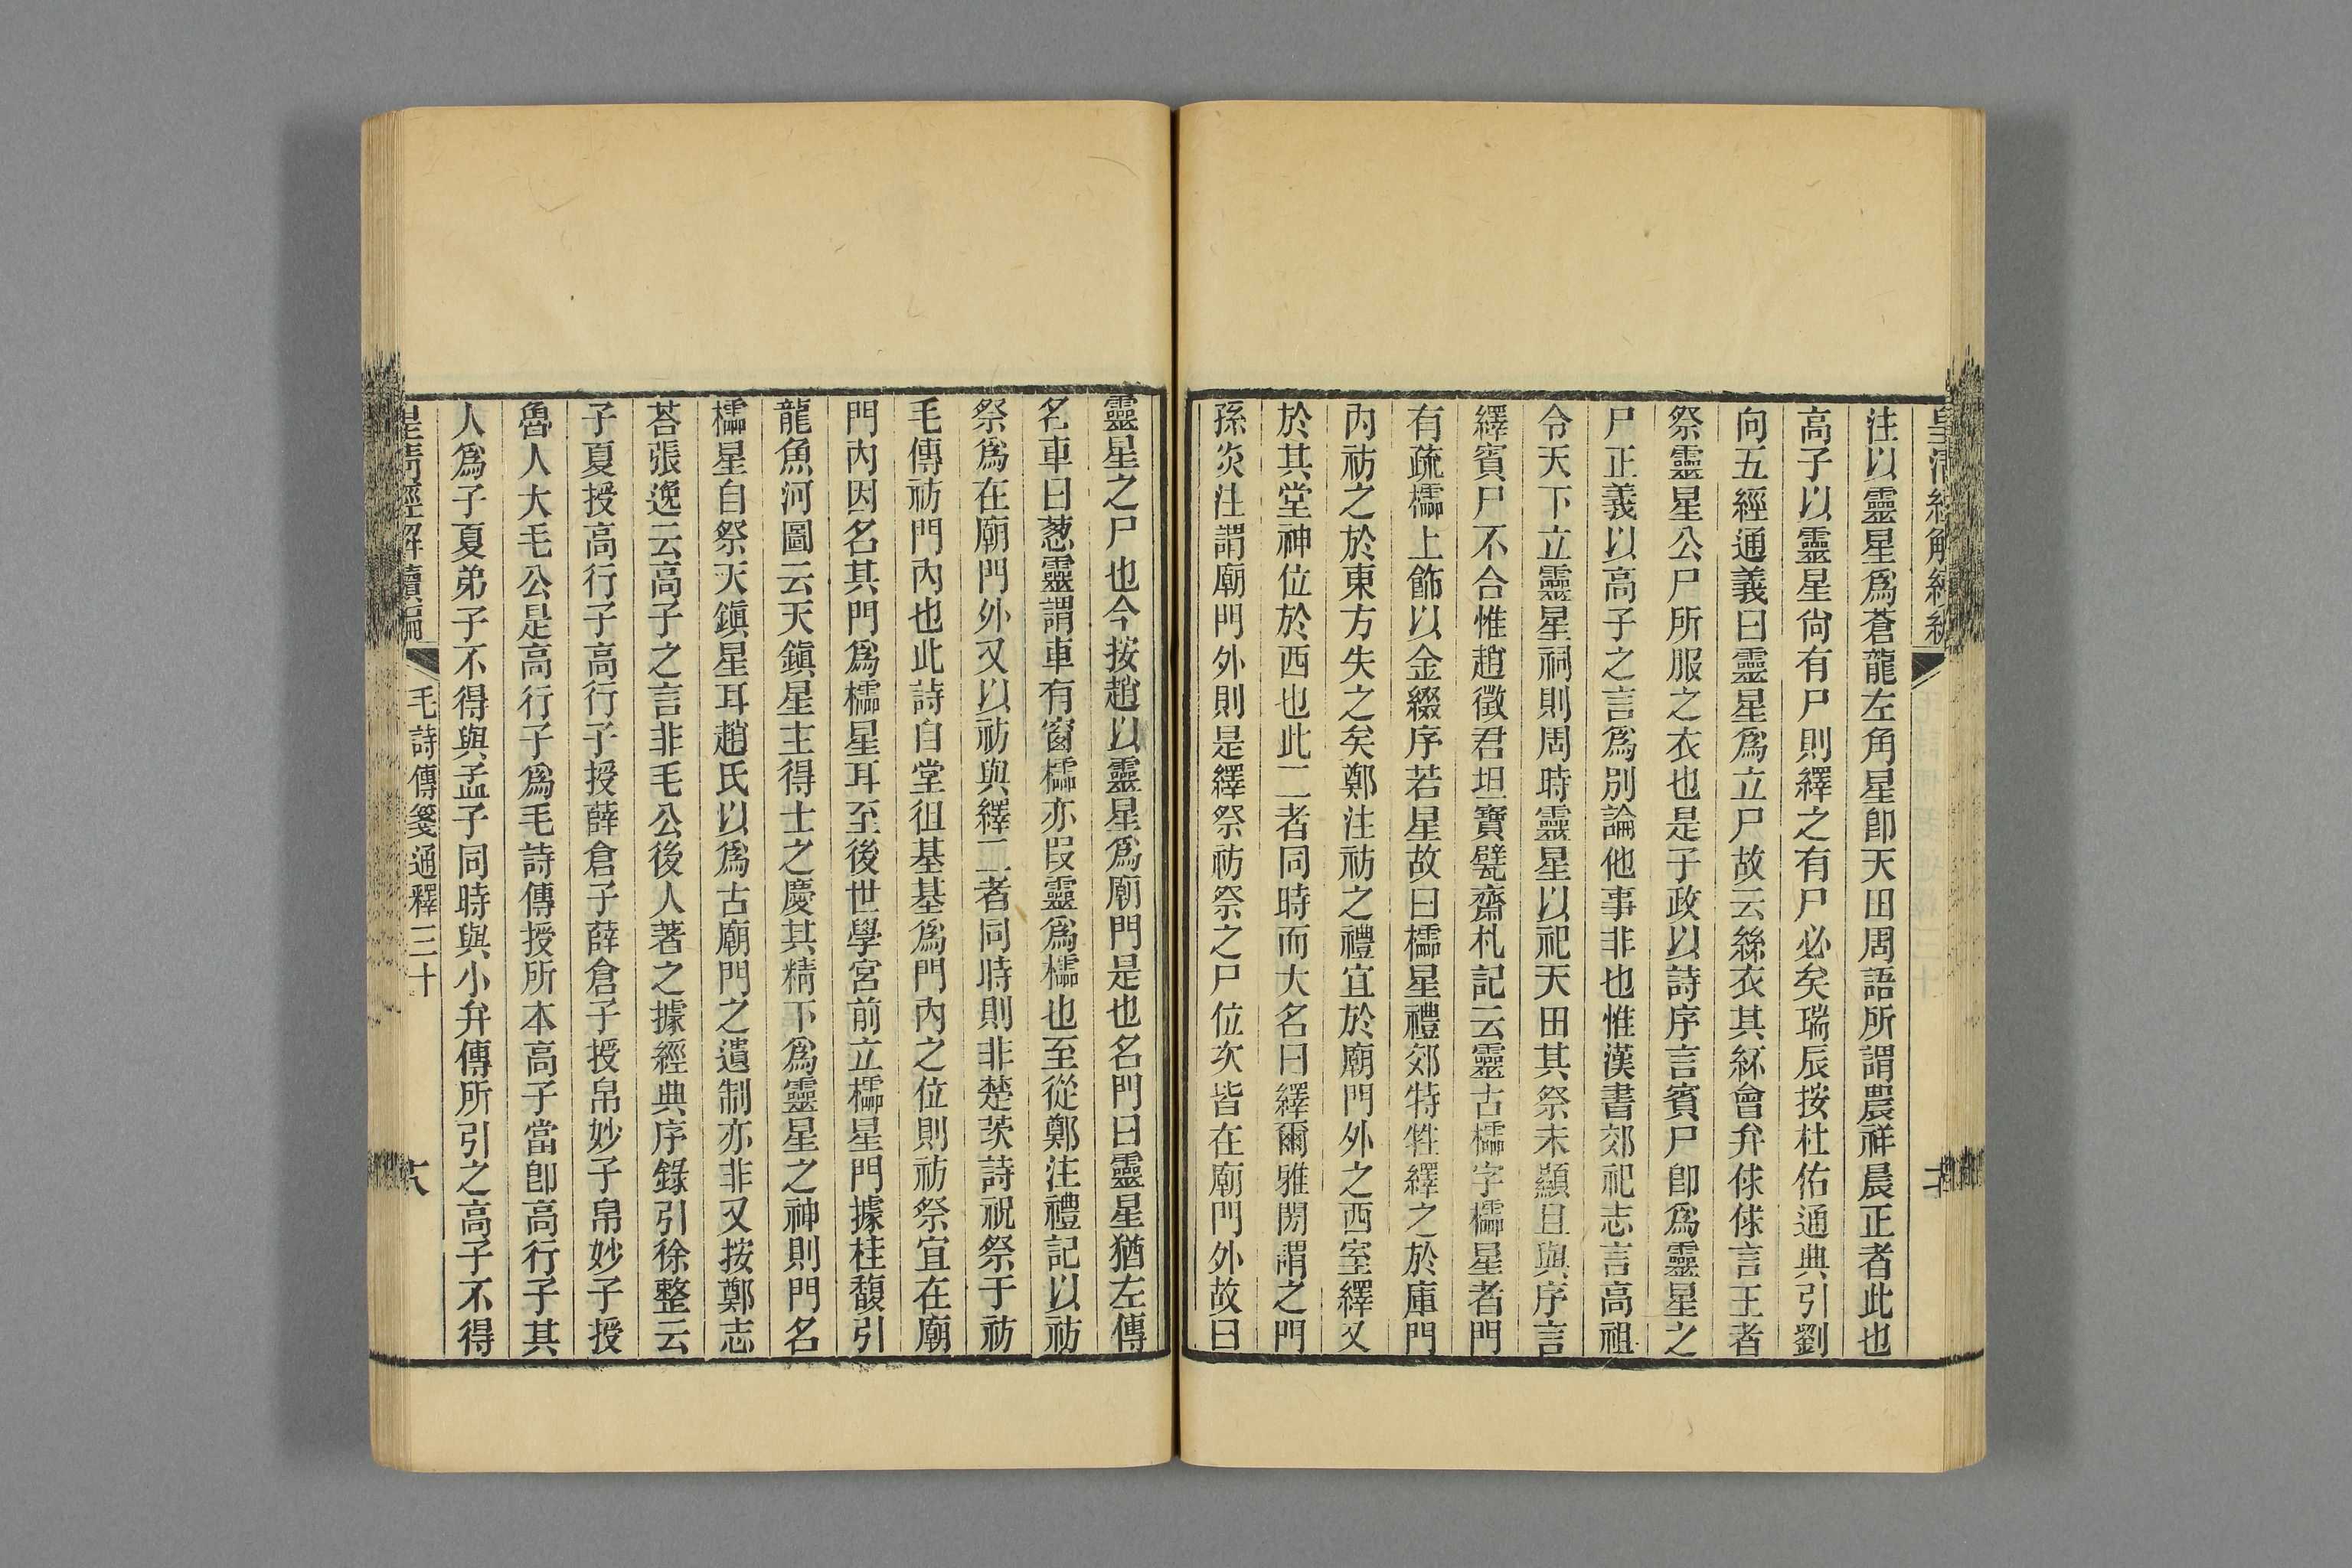 皇清經解續編
注以靈星爲蒼龍左角星卽天田周語所謂農祥晨正者此也
高子以靈星尙有尸則繹之有尸必矣瑞辰按杜佑通典引劉
向五經通義曰靈星爲立尸故云絲衣其紑會弁俅俅言王者
祭靈星公尸所服之衣也是子政以詩序言賓尸卽爲靈星之
尸正義以高子之言爲別論他事非也惟漢書郊祀志言高祖
令天下立靈星祠則周時靈星以祀天田其祭未顯且與序言
繹賓尸不合惟趙徵君坦寶甓齋札記云靈古櫺字櫺星者門
有疏櫺上飾以金綴序若星故曰櫺星禮郊特牲繹之於庫門
內祊之於東方失之矣鄭注祊之禮宜於廟門外之西室繹又
於其堂神位於西也此二者同時而大名曰繹爾雅閍謂之門
孫炎注謂廟門外則是繹祭祊祭之尸位次皆在廟門外故曰
靈星之尸也今按趙以靈星爲廟門是也名門曰靈星猶左傳
名車曰葱靈謂車有窗櫺亦叚靈爲櫺也至從鄭注禮記以祊
祭爲在廟門外又以祊與繹二者同時則非楚茨詩祝祭于祊
毛傳祊門內也此詩自堂徂基基爲門內之位則祊祭宜在廟
門內因名其門爲櫺星耳至後世學宮前立櫺星門據桂馥引
龍魚河圖云天鎭星主得士之慶其精下爲靈星之神則門名
櫺星自祭天鎭星耳趙氏以爲古廟門之遺制亦非又按鄭志
荅張逸云高子之言非毛公後人著之據經典序錄引徐整云
子夏授高行子高行子授薛倉子薛倉子授帛妙子帛妙子授
魯人大毛公是高行子爲毛詩傳授所本高子當卽高行子其
人爲子夏弟子不得與孟子同時與小弁傳所引之高子不得
皇淸經解續編 毛詩傳箋通釋三十